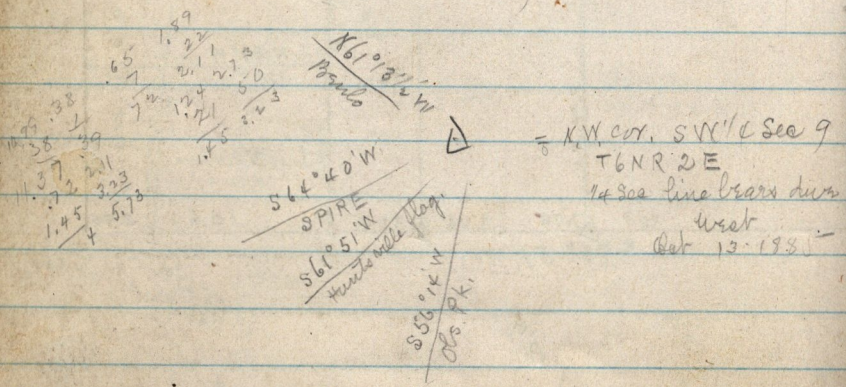 1.39
22
2.11
.65
7
72
1.24
.21
1.45
2.73
50
3.23
.38
1
.39
38
11.37
.72
1.45
4
2.11
3.23
5.73
N61°13½'W
S64°40'W
SPIRE
S61°51'W
Huntsville flag.
S56°14W
Obs. Pk.
= N.W. cor. SW¼ Sec 9
T6NR2E
¼ Sec line bears due
West
Oct 13-1885